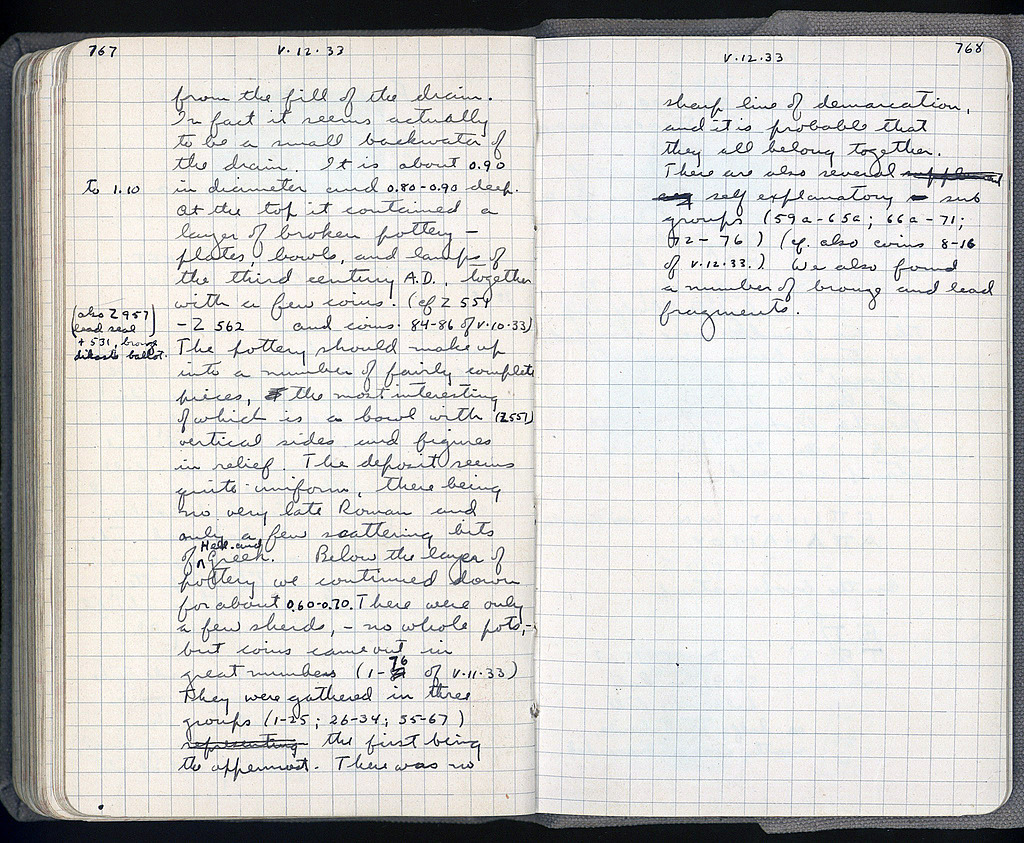 767
V.12.33
from the fill of the drain.
In fact it seems actually
to be a small backwater of
the drain. It is about 0.90
to 1.10
in diameter and 0.80-0.90 deep.
At the top it contained a
layer of broken pottery –
plates, bowls, and lamps of
the third century A.D., together
with a few coins. (cf Z 551
– Z 562 and coins 84-86 of V.10.33)
(also Z 957)
lead seal
+ 531, bronze
dikasts ballot.
The pottery should make up
into a number of fairly complete
pieces, the most interesting
of which is a bowl with (Z 551)
vertical sides and figures
in relief. The deposit seems
quite uniform, there being
no very late Roman and
only a few scattering bits
of Hell. and Greek. Below the layer of
pottery we continued down
for about 0.60-0.70. There were only
a few sherds, – no whole pots, –
but coins came out in
great numbers (1-76 of V.11.33)
They were gathered in three
groups (1-25; 26-34; 35-67)
representing the first being
the uppermost. There was no
768
V.12.33
sharp line of demarcation,
and it is probable that
they all belong together.
There are also several
self explanatory sub
groups (59a-65a; 66a-71;
72-76) (cf. also coins 8-16
of V.12.33.) We also found
a number of bronze and lead
fragments.